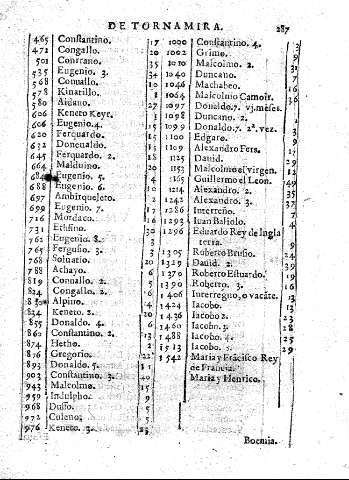 DE TORNAMIRA. 287
465 Constantino. 17
471 Congallo. 20
501 Conrrano. 35
535 Eugenio. 3 10
568 Conuallo. 10
578 Kinatillo. 1
580 Aidano. 27
606 Keneto Keyr. 1
606 Eugenio. 4. 15
620 Ferquardo. 15
632 Doneualdo. 13
645 Ferquardo. 2. 18
664 Malduino. 20
684 Eugenio. 5. 4
688 Eugenio. 6. 10
697 Ambirqueleto. 2
699 Eugenio. 7. 17
716 Mordaco. 16
731 Ethfino. 30
762 Eugenio. 8.
765 Fergusio. 3. 3
768 Soluatio. 20
788 Achayo. 16
819 Conuallo. 2. 5
824 Congallo. 2. 6
830 Alpino. 4
834 Keneto. 2. 20
855 Donaldo. 4. 6
860 Constantino. 2. 13
874 Hetho. 2
876 Gregorio. 22
893 Donaldo. 5. 11
903 Constantino. 3. 40
943 Malcolmo. 15
959 Indulpho. 9
968 Duffo. 5
972 Culeno. 5
976 Keneto. 3. 23
1000 Constantino. 4. 3
1002 Grimo. 9
1010 Malcolmo. 2. 31
1040 Duncano. 7
1046 Machabeo. 16
1064 Malcolmo Camoir. 36
1097 Donaldo. 7. vj. meses.
1098 Duncano. 2.
1099 Donaldo. 7. 2ª. vez. 3
1100 Edgaro. 9
1109 Alexandro Fers. 17
1125 Dauid. 29
1153 Malcolmo el virgen. 12
1165 Guillermo el Leon. 49
1214 Alexandro. 2. 35
1242 Alexandro. 3. 37
1286 Interreño. 7
1286 Iuan Baliolo. 4
1296 Eduardo Rey de Ingla
terra. 9
1305 Roberto Brusio. 24
1329 Dauid. 2. 41
1370 Roberto Estuardo. 20
1390 Roberto. 3. 16
1406 Interregno, o vacãte. 13
1424 Iacobo. 13
1436 Iacobo 2. 23
1460 Iacobo. 3. 28
1488 Iacobo. 4. 25
1513 Iacobo. 5. 29
1542 Maria y Frãcisco Rey
de Francia.
Maria y Henrico.
Boemia.